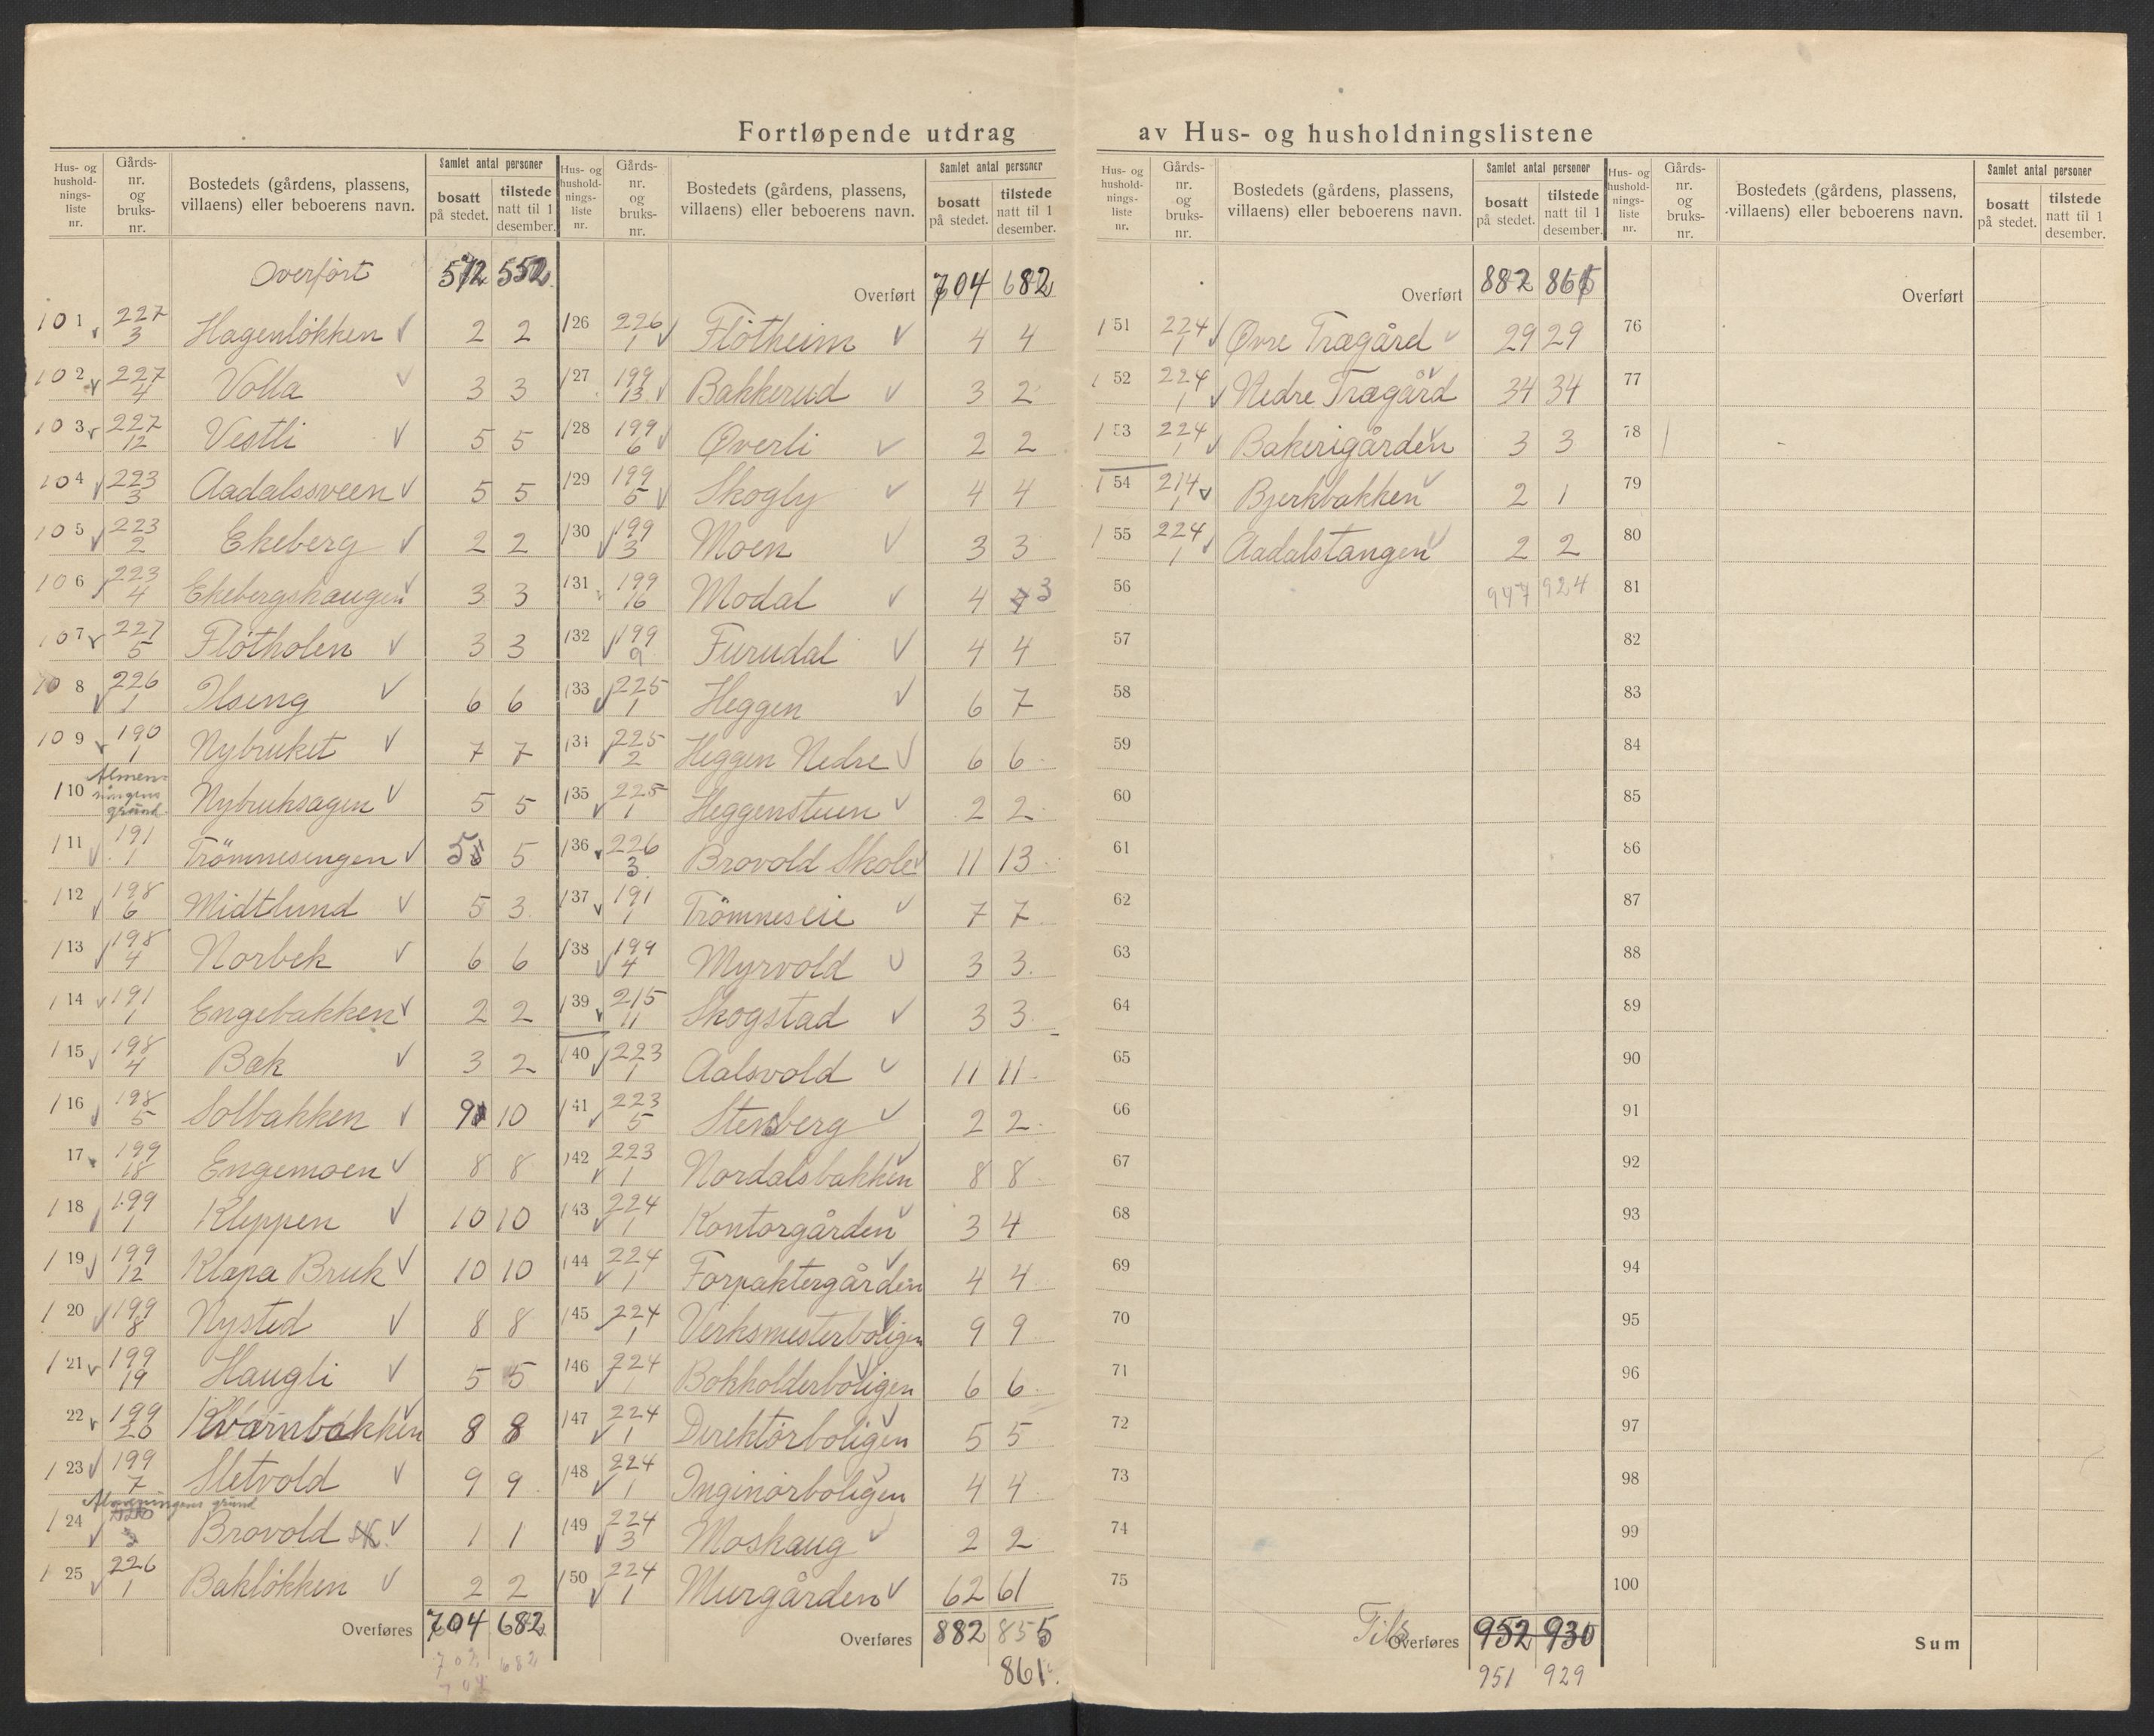 Fortløpende utdrag av Hus- og husholdningslistene
Hus- og husholdningsliste nr. | Gårdsnr. og bruksnr. | Bostedets (gårdens, plassens, villaens) eller beboerens navn. | Samlet antal personer | bosatt på stedet. | tilstede natt til 1 desember.
Overført 572 552
101 227/3 Hagenløkken 2 2
102 227/4 Volla 3 3
103 227/12 Vestli 5 5
104 223/3 Aadalssveen 5 5
105 223/2 Ekeberg 2 2
106 223/4 Ekebergshaugen 3 3
107 227/5 Flötholen 3 3
108 226/1 Ilseng 6 6
109 190/1 Nybruket 7 7
110 Almenningens grund Nybruksagen 5 5
111 191/1 Trömnesengen 5 5
112 198/6 Midtlund 5 3
113 198/4 Norbek 6 6
114 191/1 Engebakken 2 2
115 198/4 Bæk 3 2
116 198/5 Solbakken 9 10
17 199/18 Engemoen 8 8
118 199/1 Kleppen 10 10
119 199/12 Klapa Bruk 10 10
120 199/8 Nysted 8 8
121 199/19 Haugli 5 5
22 199/20 Kvarnbakken 8 8
123 199/7 Sletvold 9 9
124 Almenningens grund Brovold 1 1
125 226/1 Bakløkken 2 2
Overføres 704 682
702 682
704
Hus- og husholdningsliste nr. | Gårdsnr. og bruksnr. | Bostedets (gårdens, plassens, villaens) eller beboerens navn. | Samlet antal personer | bosatt på stedet. | tilstede natt til 1 desember.
Overført 704 682
126 226/1 Flötheim 4 4
127 199/13 Bakkerud 3 2
128 199/6 Øverli 2 2
129 199/5 Skogly 4 4
130 199/3 Moen 3 3
131 199/16 Modal 4 3
132 199/9 Furudal 4 4
133 225/1 Heggen 6 7
134 225/2 Heggen Nedre 6 6
135 225/1 Heggenstuen 2 2
136 226/3 Brovold Skole 11 13
137 191/1 Trömneseie 7 7
138 199/4 Myrvold 3 3
139 215/11 Skogstad 3 3
140 223/1 Aalsvold 11 11
141 223/5 Stensberg 2 2
142 223/1 Nordalsbakken 8 8
143 224/1 Kontorgården 3 4
144 224/1 Forpaktergården 4 4
145 224/1 Verksmesterboligen 9 9
146 224/1 Bokholderboligen 6 6
147 224/1 Direktørboligen 5 5
148 224/1 Inginørboligen 4 4
149 224/3 Moshaug 2 2
150 224/1 Murgården 62 61
Overføres 882 855
861
Hus- og husholdningsliste nr. | Gårdsnr. og bruksnr. | Bostedets (gårdens, plassens, villaens) eller beboerens navn. | Samlet antal personer | bosatt på stedet. | tilstede natt til 1 desember.
Overført 882 861
151 224/1 Øvre Trægård 29 29
152 224/1 Nedre Trægård 34 34
153 224/1 Bakerigården 3 3
154 214/1 Bjerkbakken 2 1
155 224/1 Aadalstangen 2 2
56 947 924
57
58
59
60
61
62
63
64
65
66
67
68
69
70
71
72
73
74
75
Tils Overføres 952 930
951 929
Hus- og husholdningsliste nr. | Gårdsnr. og bruksnr. | Bostedets (gårdens, plassens, villaens) eller beboerens navn. | Samlet antal personer | bosatt på stedet. | tilstede natt til 1 desember.
Overført
76
77
78
79
80
81
82
83
84
85
86
87
88
89
90
91
92
93
94
95
96
97
98
99
100
Sum